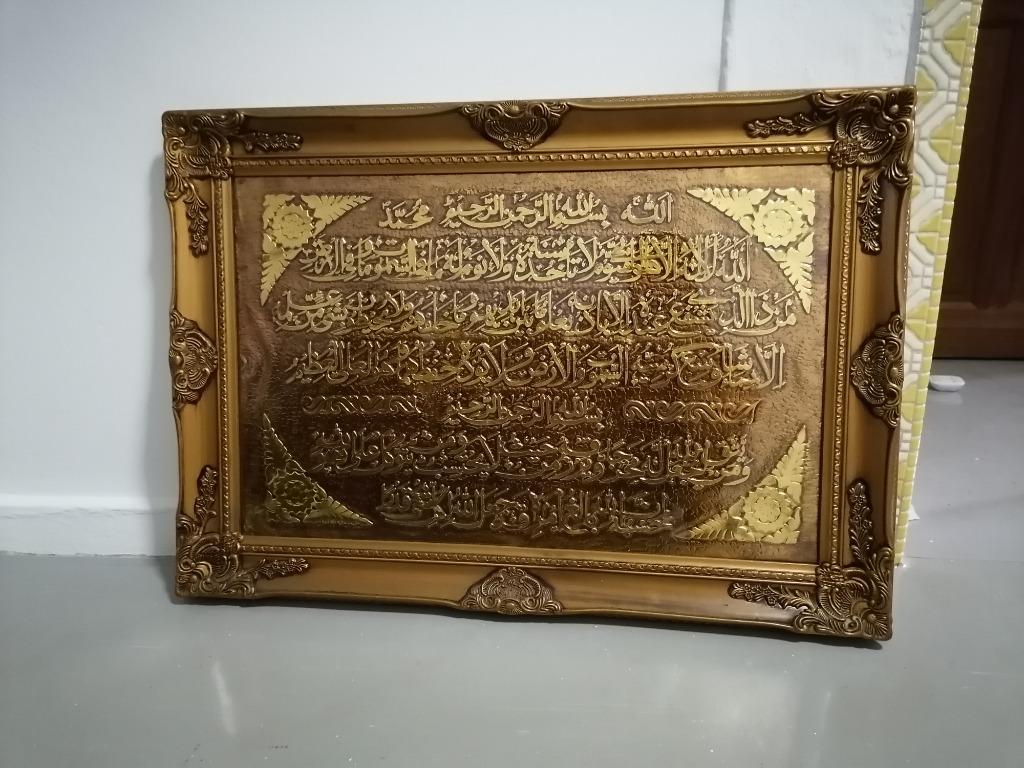 الله بسم الله الرحمن الرحيم محمد
الله لا إله إلا هو الحي القيوم لا تأخذه سنة ولا نوم له ما في السموات وما في الأرض
من ذا الذي يشفع عنده إلا بإذنه يعلم ما بين أيديهم وما خلفهم ولا يحيطون بشيء من علمه
إلا بما شاء وسع كرسيه السموات والأرض ولا يؤده حفظهما وهو العلي العظيم
بسم الله الرحمن الرحيم
ومن يتق الله يجعل له مخرجا ويرزقه من حيث لا يحتسب ومن يتوكل على الله فهو
حسبه إن الله بالغ أمره قد جعل الله لكل شيء قدرا